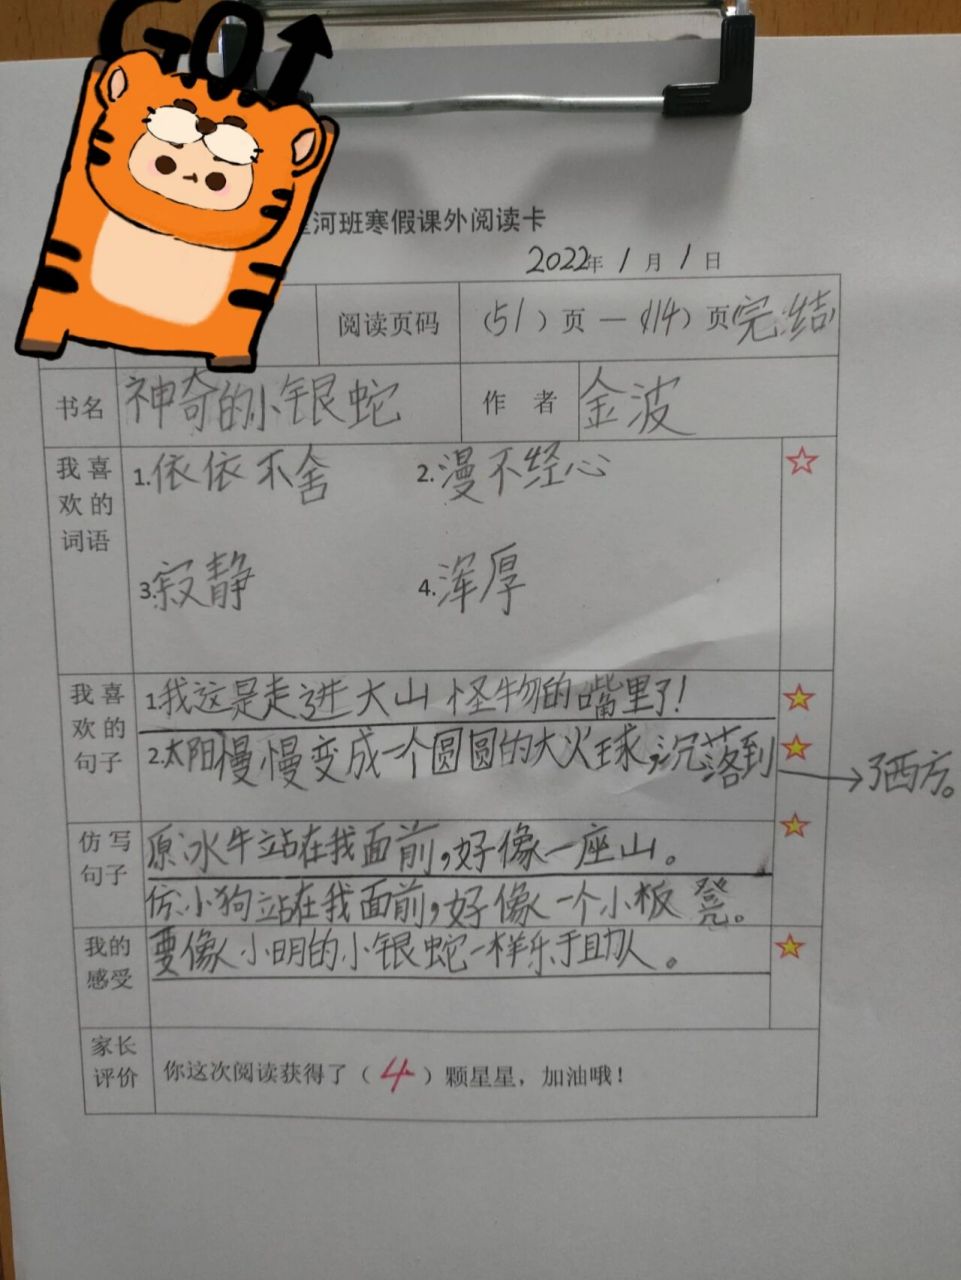 GO!
河班寒假课外阅读卡
2022年 1 月 1 日
阅读页码 (51)页 — (114)页完结
书名 神奇的小银蛇 作 者 金波
我喜欢的词语
1.依依不舍 2.漫不经心
3.寂静 4.浑厚
我喜欢的句子
1我这是走进大山怪物的嘴里了!
2.太阳慢慢变成一个圆圆的大火球,沉落到
了西方。
仿写句子
原:水牛站在我面前,好像一座山。
仿:小狗站在我面前,好像一个小板凳。
我的感受
要像小明的小银蛇一样乐于助人。
家长评价
你这次阅读获得了(4)颗星星,加油哦!